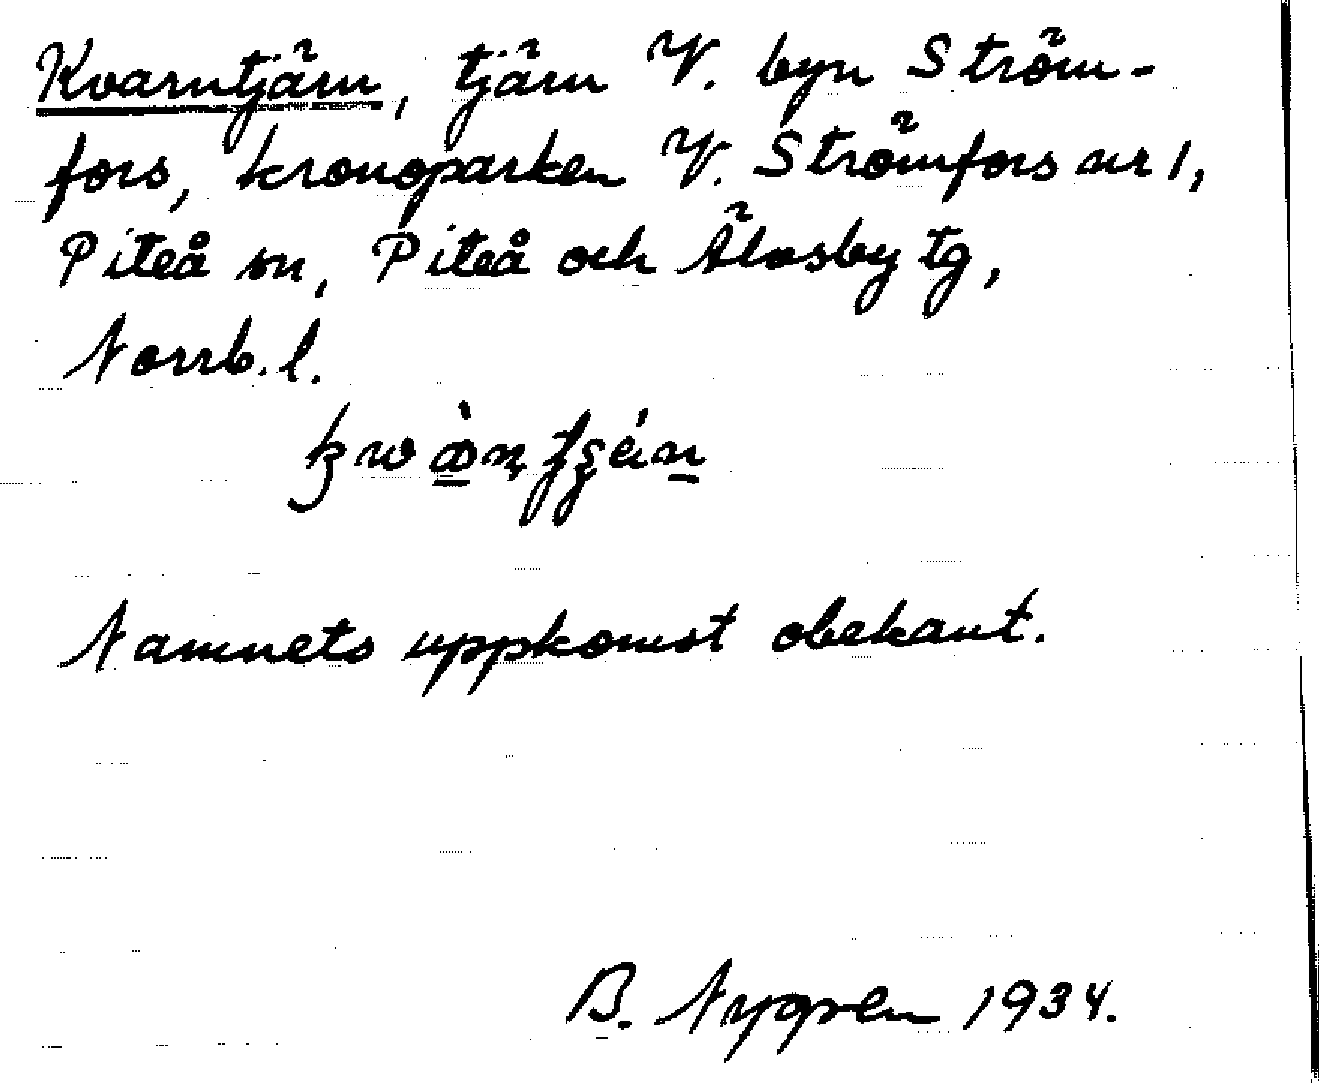 Kvarntjärn, tjärn V. byn Ström-
fors, kronoparken V. Strömfors nr 1,
Piteå sn, Piteå och Älvsby tg,
Norrb. l.
Namnets uppkomst obekant.
B. Nygren 1934.